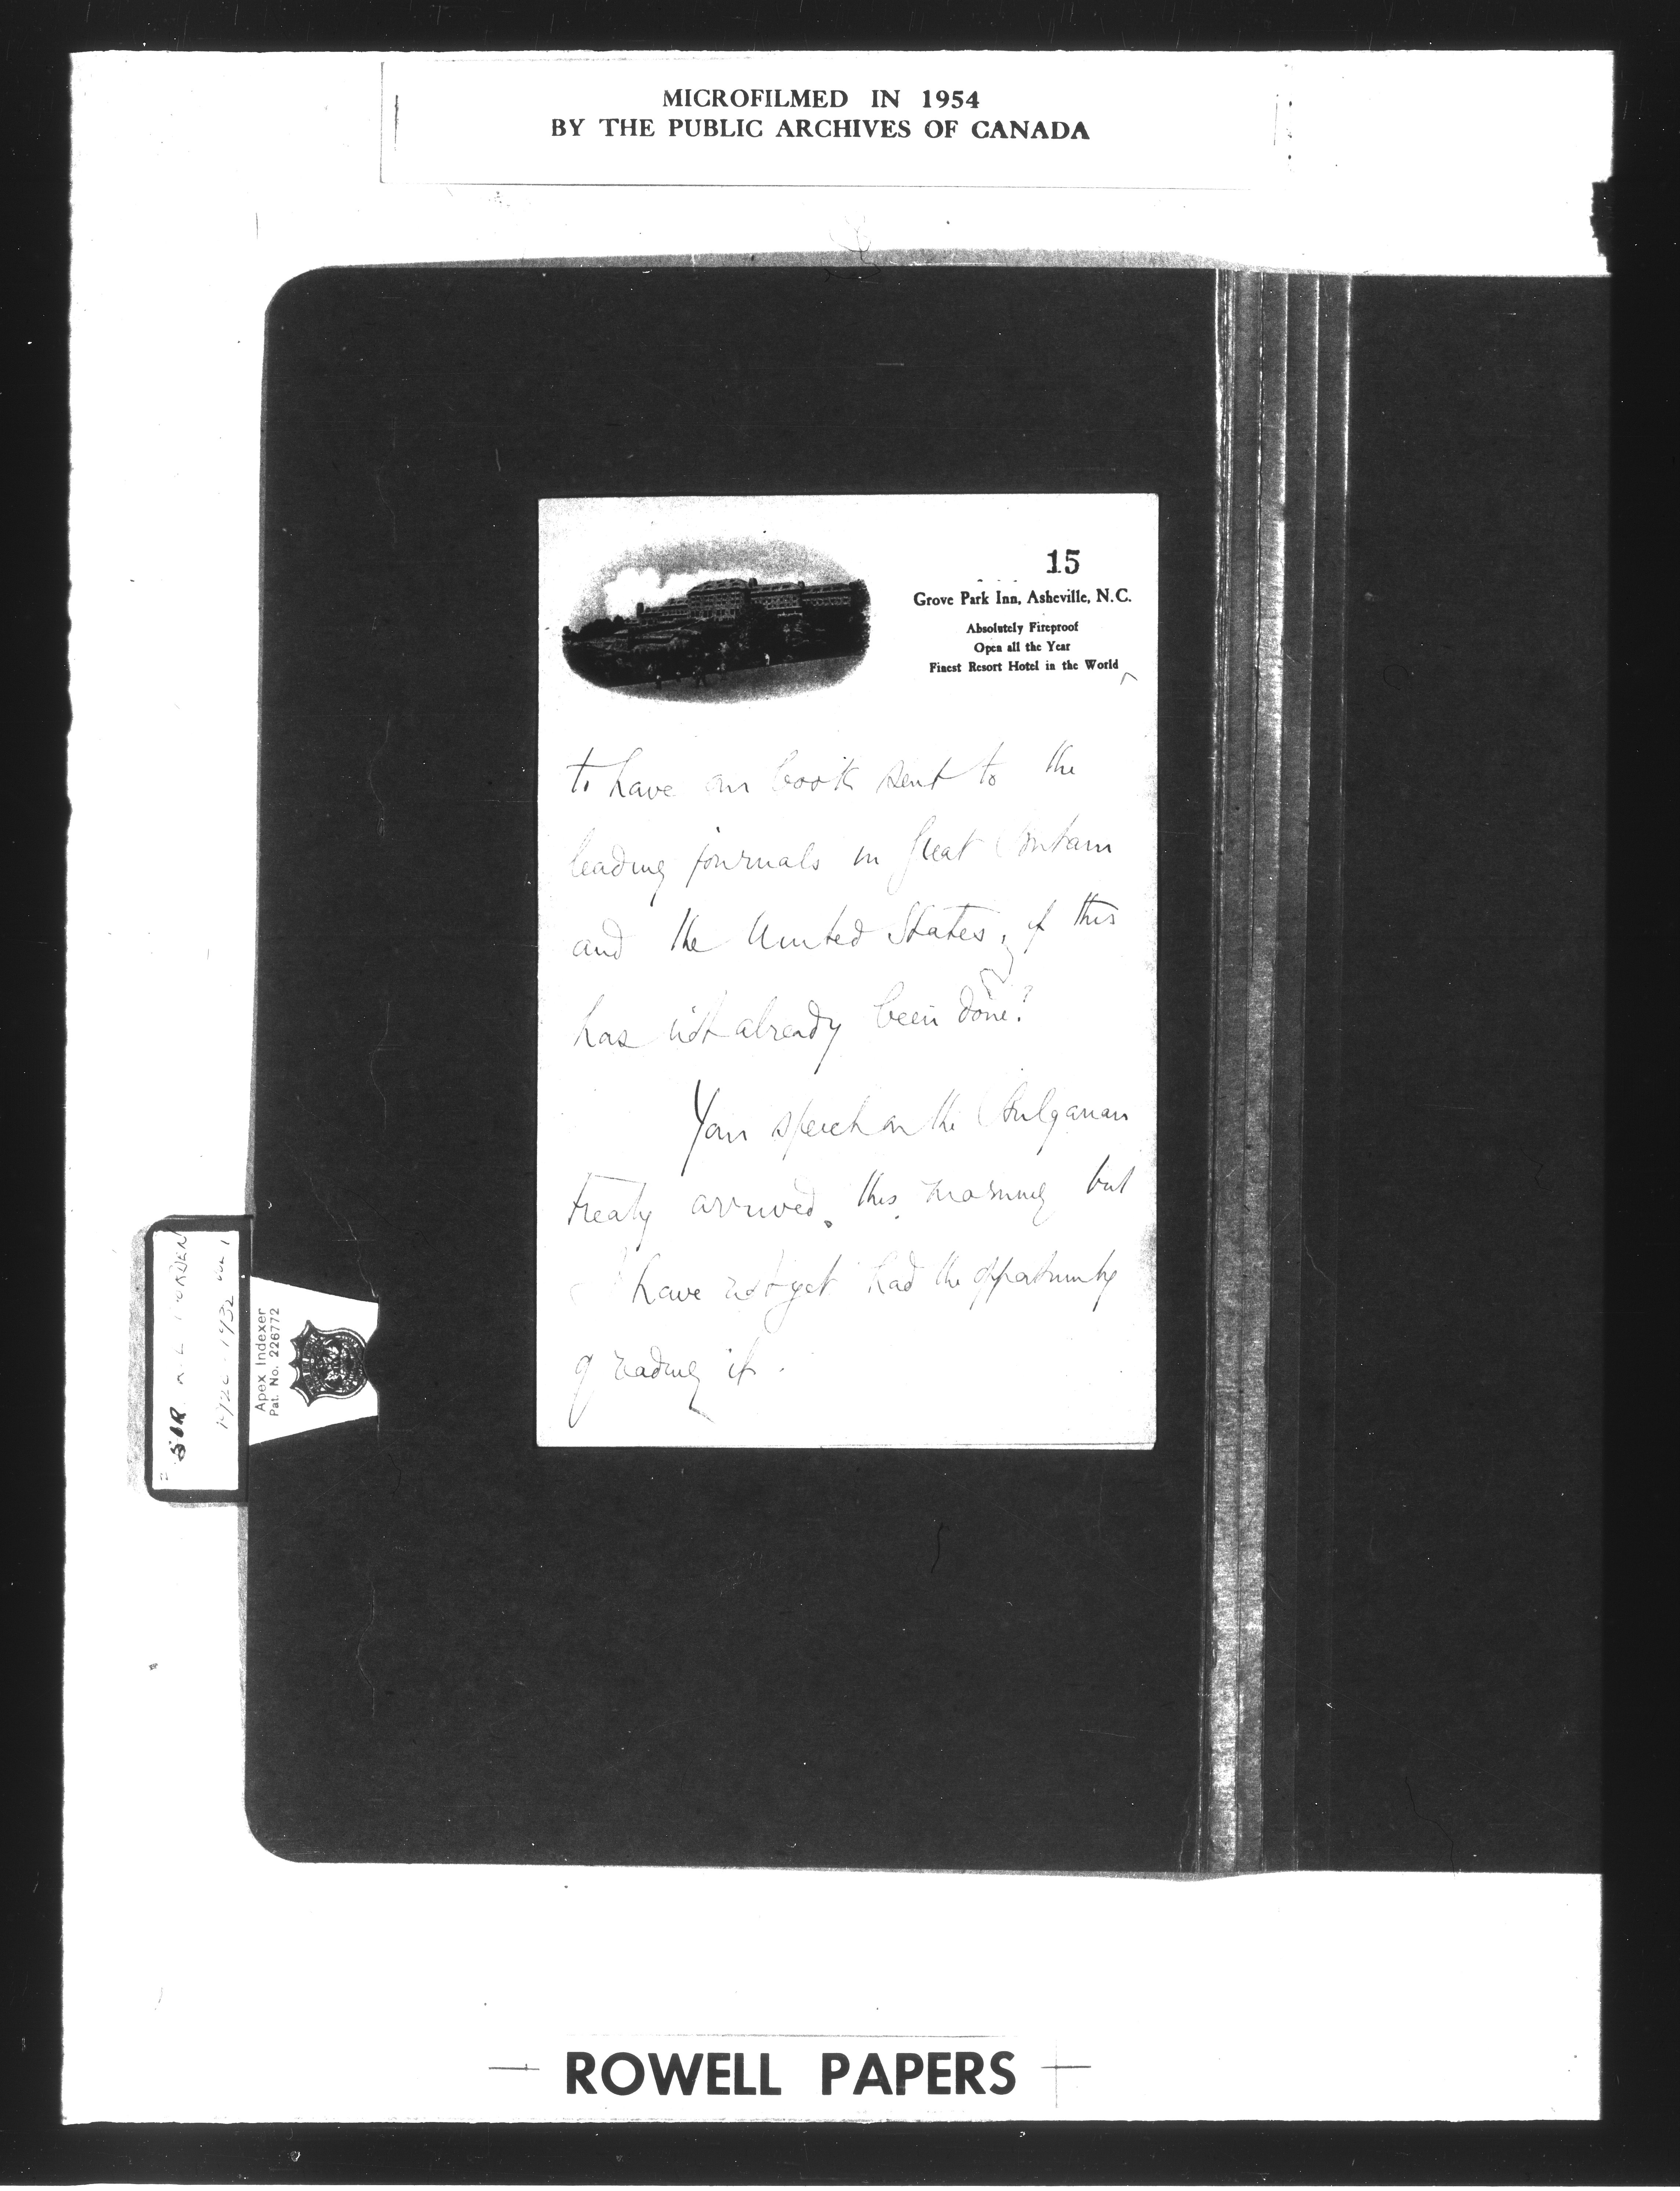 MICROFILMED IN 1954
BY THE PUBLIC ARCHIVES OF CANADA
15
Grove Park Inn, Asheville, N.C.
Absolutely Fireproof
Open all the Year
Finest Resort Hotel in the World
to have our book sent to the
leading journals in Great Britain
and the United States, if this
has not already been done?
Your speech on the Bulgarian
treaty arrived this morning but
I have not yet had the opportunity
of reading it.
SIR R L BORDEN
1920-1932 VOL 1
Apex Indexer
Pat. No. 226772
ROWELL PAPERS